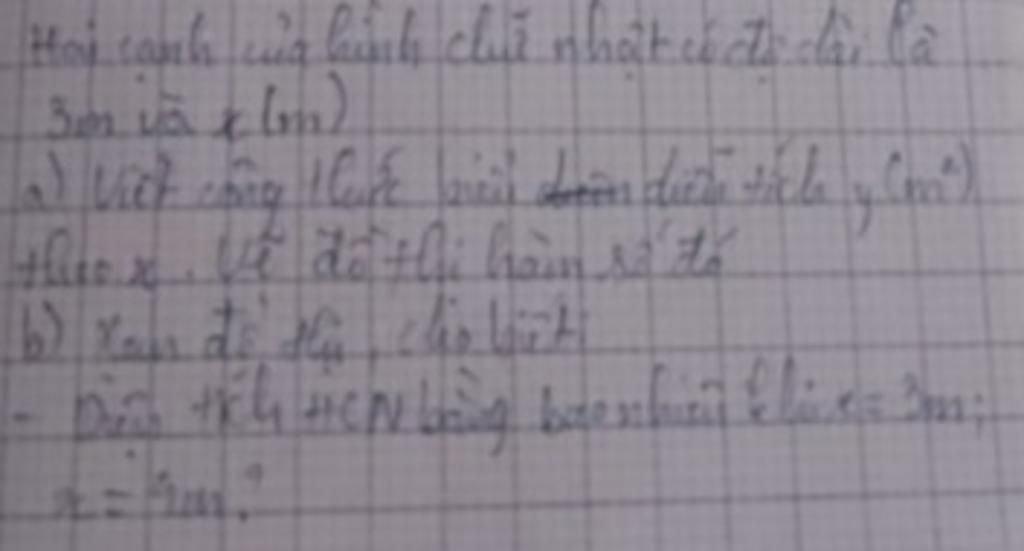 Hai cạnh của hình chữ nhật có độ dài là
3m và x (m)
a) Viết công thức biểu diễn diện tích y (m²)
theo x. Vẽ đồ thị hàm số đó
b) Xem đồ thị, cho biết:
- Diện tích HCN bằng bao nhiêu khi x = 3m;
x = m?